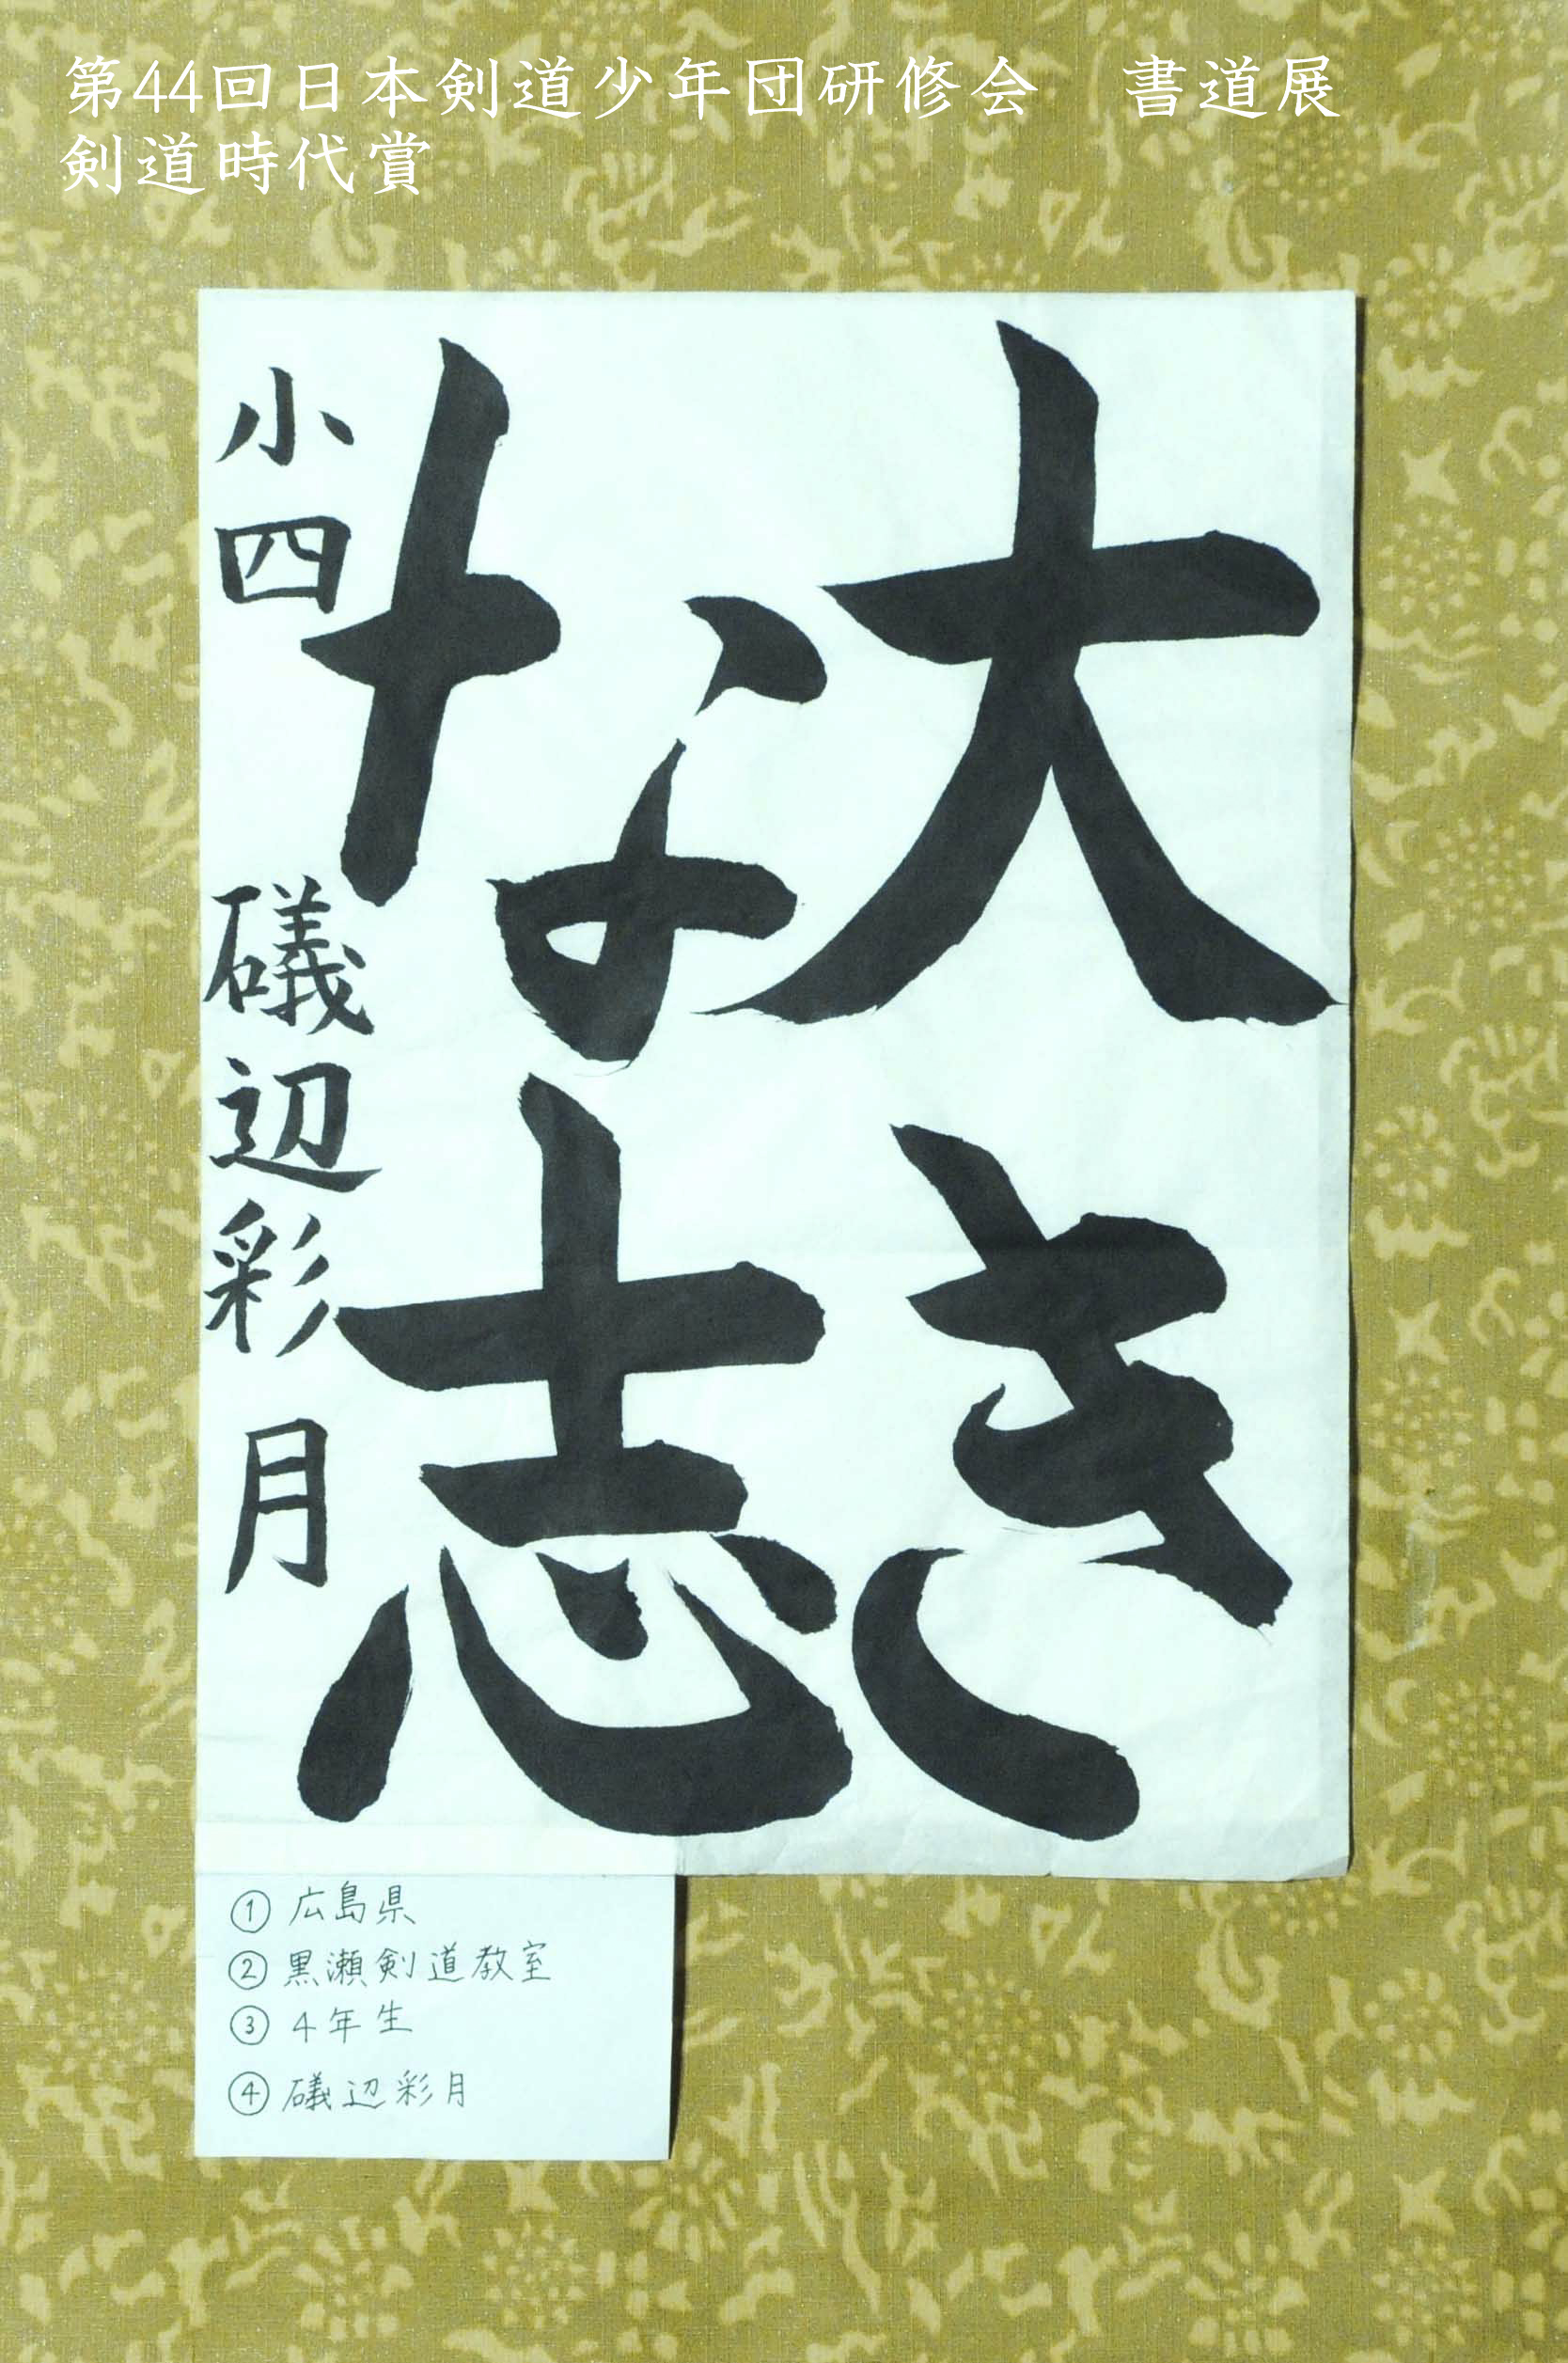 第44回日本剣道少年団研修会　書道展
剣道時代賞
大き
な志
小四 礒辺彩月
① 広島県
② 黒瀬剣道教室
③ 4年生
④ 礒辺彩月